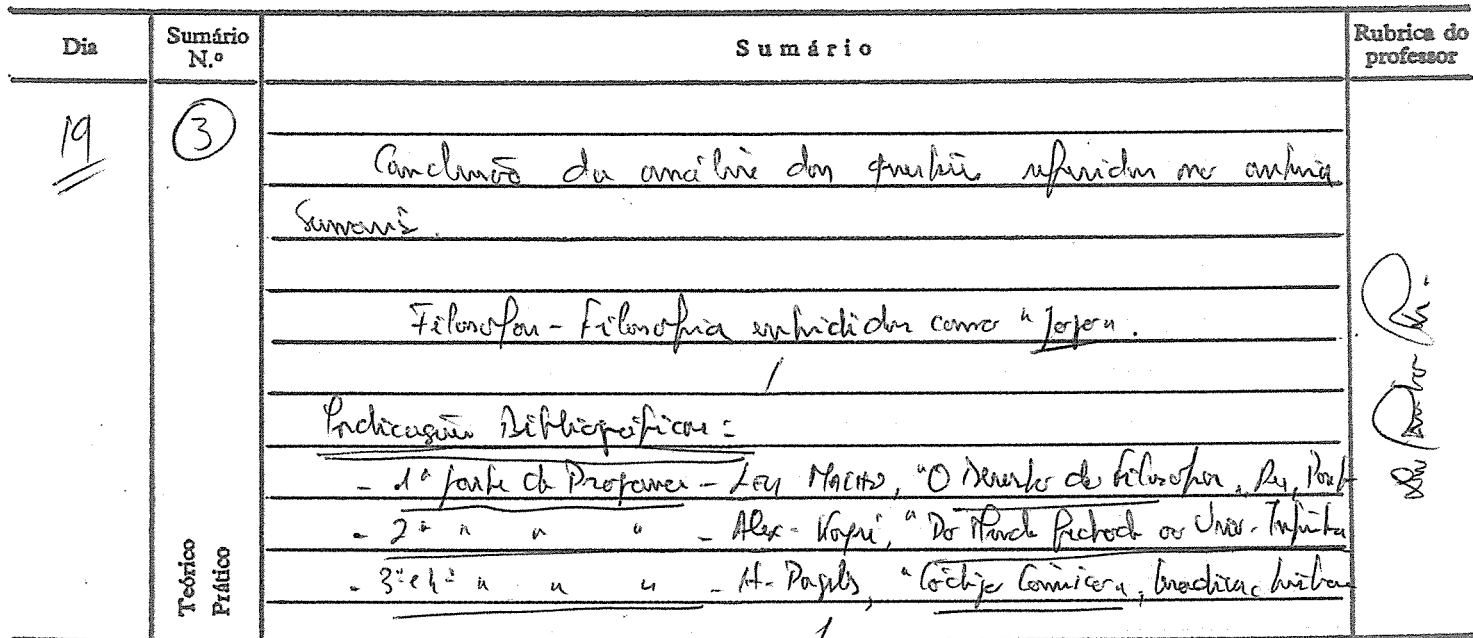 Dia
Sumário N.º
Sumário
Rubrica do professor
19
3
Conclusão da análise das questões referidas no anterior
Sumário.
Filosofia - Filosofia entendida como "
Indicações Bibliográficas:
- 1ª parte do Programa - "O de Filosofia,
- 2ª " " " - Alex. Koyré, "Do Mundo Fechado ao Univ. Infinito
- 3ª e 4ª " " " - H. Pagels, "Código Cósmico", Gradiva, Lisboa
Teórico
Prático